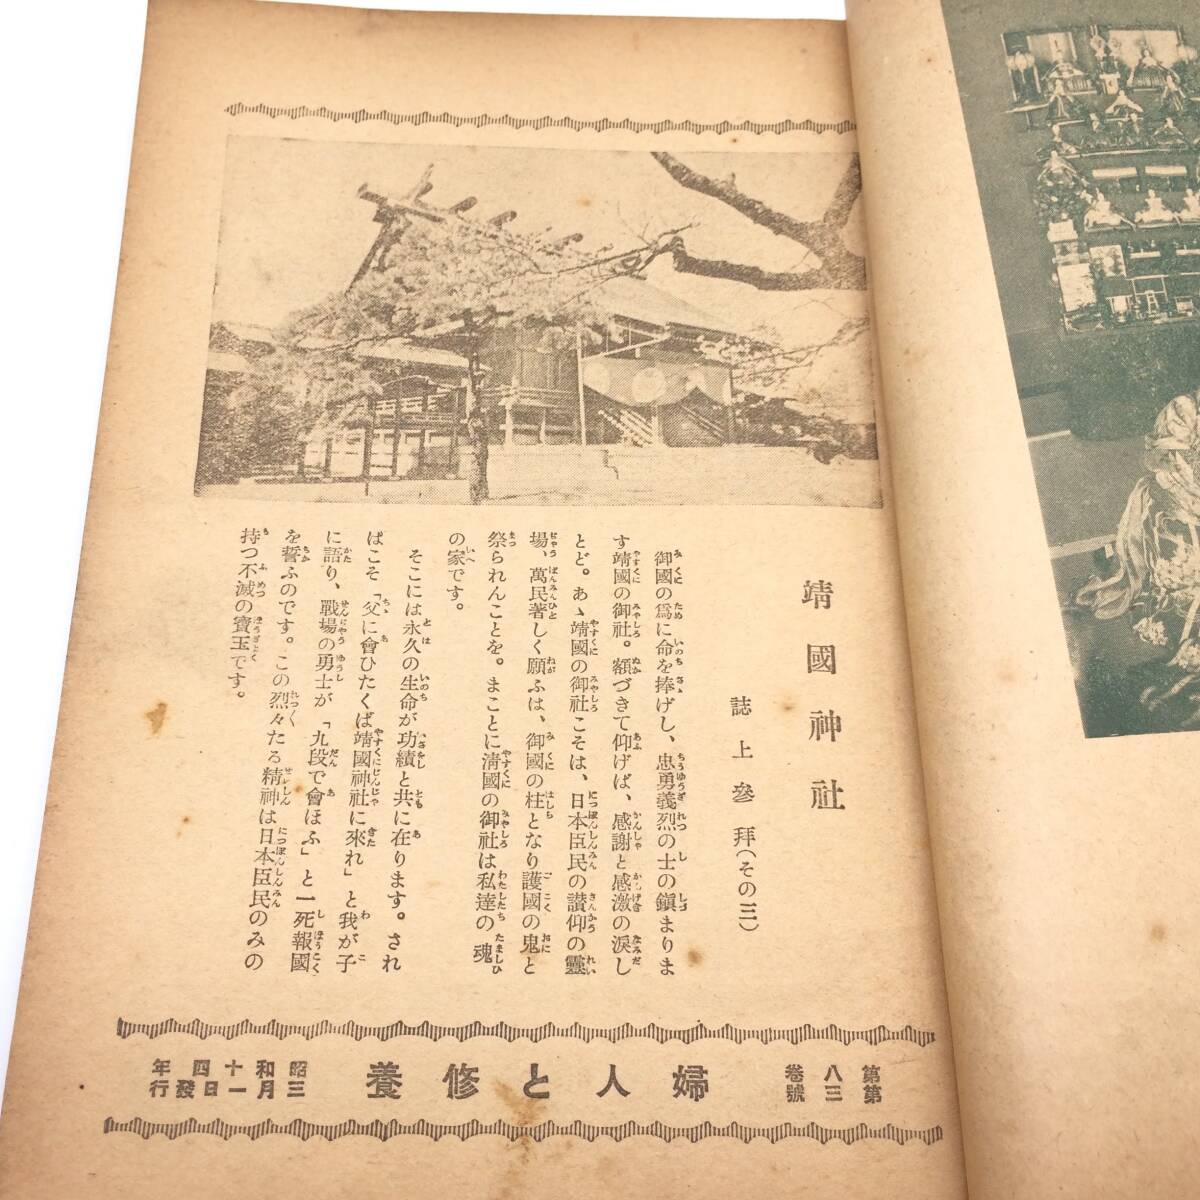 靖國神社
誌上參拜(その三)
御國の爲に命を捧げし、忠勇義烈の士の鎭まりま
す靖國の御社。額づきて仰げば、感謝と感激の淚し
とど。あゝ靖國の御社こそは、日本臣民の讃仰の靈
場、萬民著しく願ふは、御國の柱となり護國の鬼と
祭られんことを。まことに淸國の御社は私達の魂
の家です。
そこには永久の生命が功績と共に在ります。され
ばこそ「父に會ひたくば靖國神社に來れ」と我が子
に語り、戰場の勇士が「九段で會ほふ」と一死報國
を誓ふのです。この烈々たる精神は日本臣民のみの
持つ不滅の寶玉です。
第八卷
第三號
婦人と修養
昭和十四年
三月一日發行